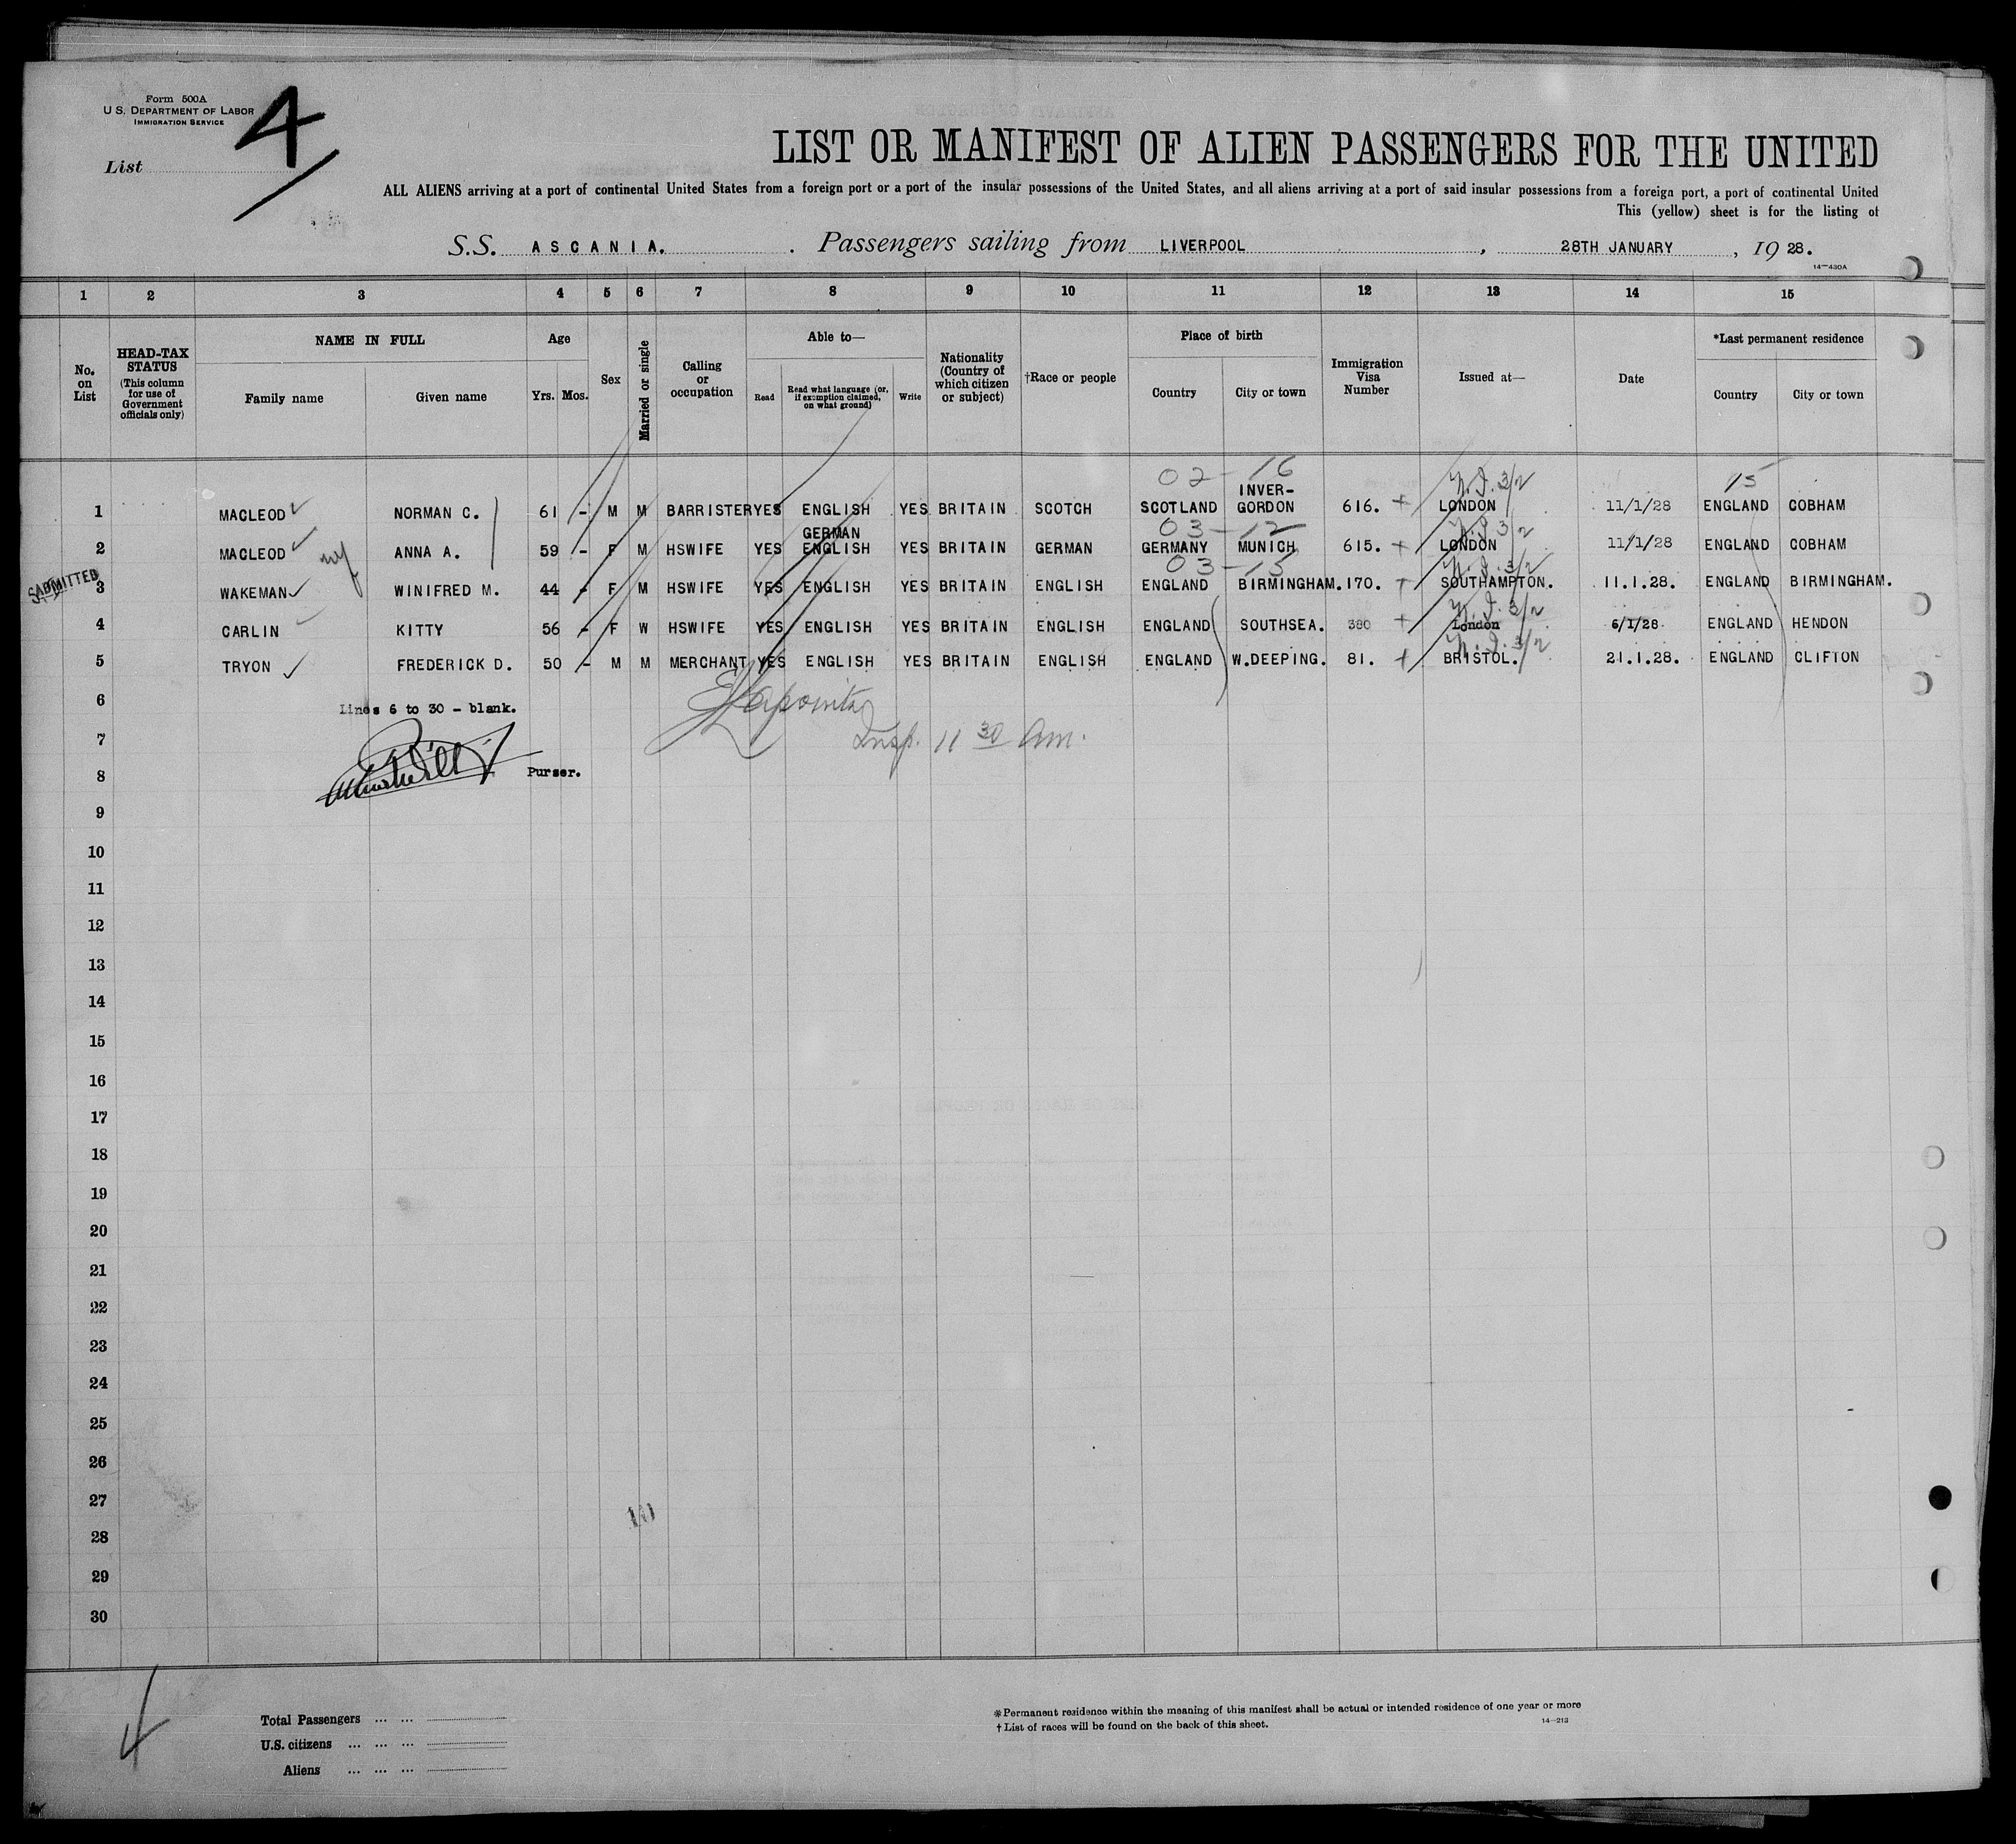 Form 500A
U.S. DEPARTMENT OF LABOR
IMMIGRATION SERVICE
List 4
LIST OR MANIFEST OF ALIEN PASSENGERS FOR THE UNITED
ALL ALIENS arriving at a port of continental United States from a foreign port or a port of the insular possessions of the United States, and all aliens arriving at a port of said insular possessions from a foreign port, a port of continental United
This (yellow) sheet is for the listing of
S.S. ASCANIA. Passengers sailing from LIVERPOOL, 28TH JANUARY, 19 28.
14—430A
1 2 3 4 5 6 7 8 9 10 11 12 13 14 15
No. on List
HEAD-TAX STATUS (This column for use of Government officials only)
NAME IN FULL
Family name Given name
Age
Yrs. Mos.
Sex
Married or single
Calling or occupation
Able to—
Read
Read what language (or, if exemption claimed, on what ground)
Write
Nationality (Country of which citizen or subject)
†Race or people
Place of birth
Country City or town
Immigration Visa Number
Issued at—
Date
*Last permanent residence
Country City or town
02-16 15
1 MACLEOD NORMAN C. 61 - M M BARRISTER YES ENGLISH YES BRITAIN SCOTCH SCOTLAND INVER-GORDON 616. LONDON 11/1/28 ENGLAND COBHAM
03-12
2 MACLEOD ANNA A. 59 - F M HSWIFE YES GERMAN ENGLISH YES BRITAIN GERMAN GERMANY MUNICH 615. LONDON 11/1/28 ENGLAND COBHAM
03-15
ADMITTED
3 WAKEMAN WINIFRED M. 44 - F M HSWIFE YES ENGLISH YES BRITAIN ENGLISH ENGLAND BIRMINGHAM. 170. SOUTHAMPTON. 11.1.28. ENGLAND BIRMINGHAM.
4 CARLIN KITTY 56 - F W HSWIFE YES ENGLISH YES BRITAIN ENGLISH ENGLAND SOUTHSEA. 380 London 6/1/28 ENGLAND HENDON
5 TRYON FREDERICK D. 50 - M M MERCHANT YES ENGLISH YES BRITAIN ENGLISH ENGLAND W.DEEPING. 81. BRISTOL. 21.1.28. ENGLAND CLIFTON
6 Lines 6 to 30 - blank.
7 Insp. 11 30 am.
8 Purser.
9
10
11
12
13
14
15
16
17
18
19
20
21
22
23
24
25
26
27
10
28
29
30
Total Passengers ... ...
U.S. citizens ... ... ...
Aliens ... ... ...
*Permanent residence within the meaning of this manifest shall be actual or intended residence of one year or more
†List of races will be found on the back of this sheet.
14—213